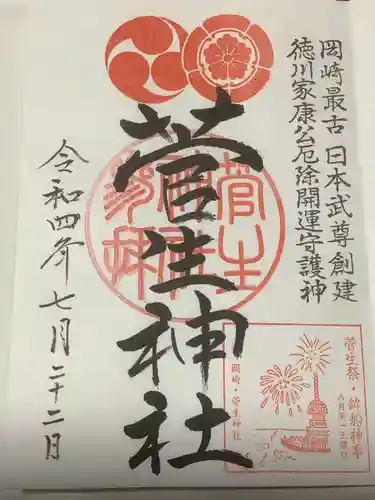 岡崎最古 日本武尊創建
徳川家康公厄除開運守護神
菅生神社
令和四年七月二十二日
菅生祭・鉾船神事
岡崎・菅生神社